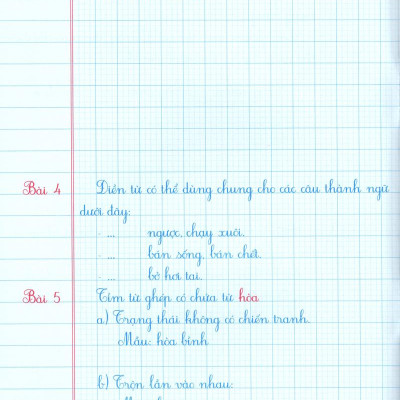 Bài 4 Điền từ có thể dùng chung cho các câu thành ngữ
dưới đây:
- ... ngược, chạy xuôi.
- ... bán sống, bán chết.
- ... bở hơi tai.
Bài 5 Tìm từ ghép có chứa từ hòa
a) Trạng thái không có chiến tranh.
Mẫu: hòa bình
b) Trộn lẫn vào nhau: